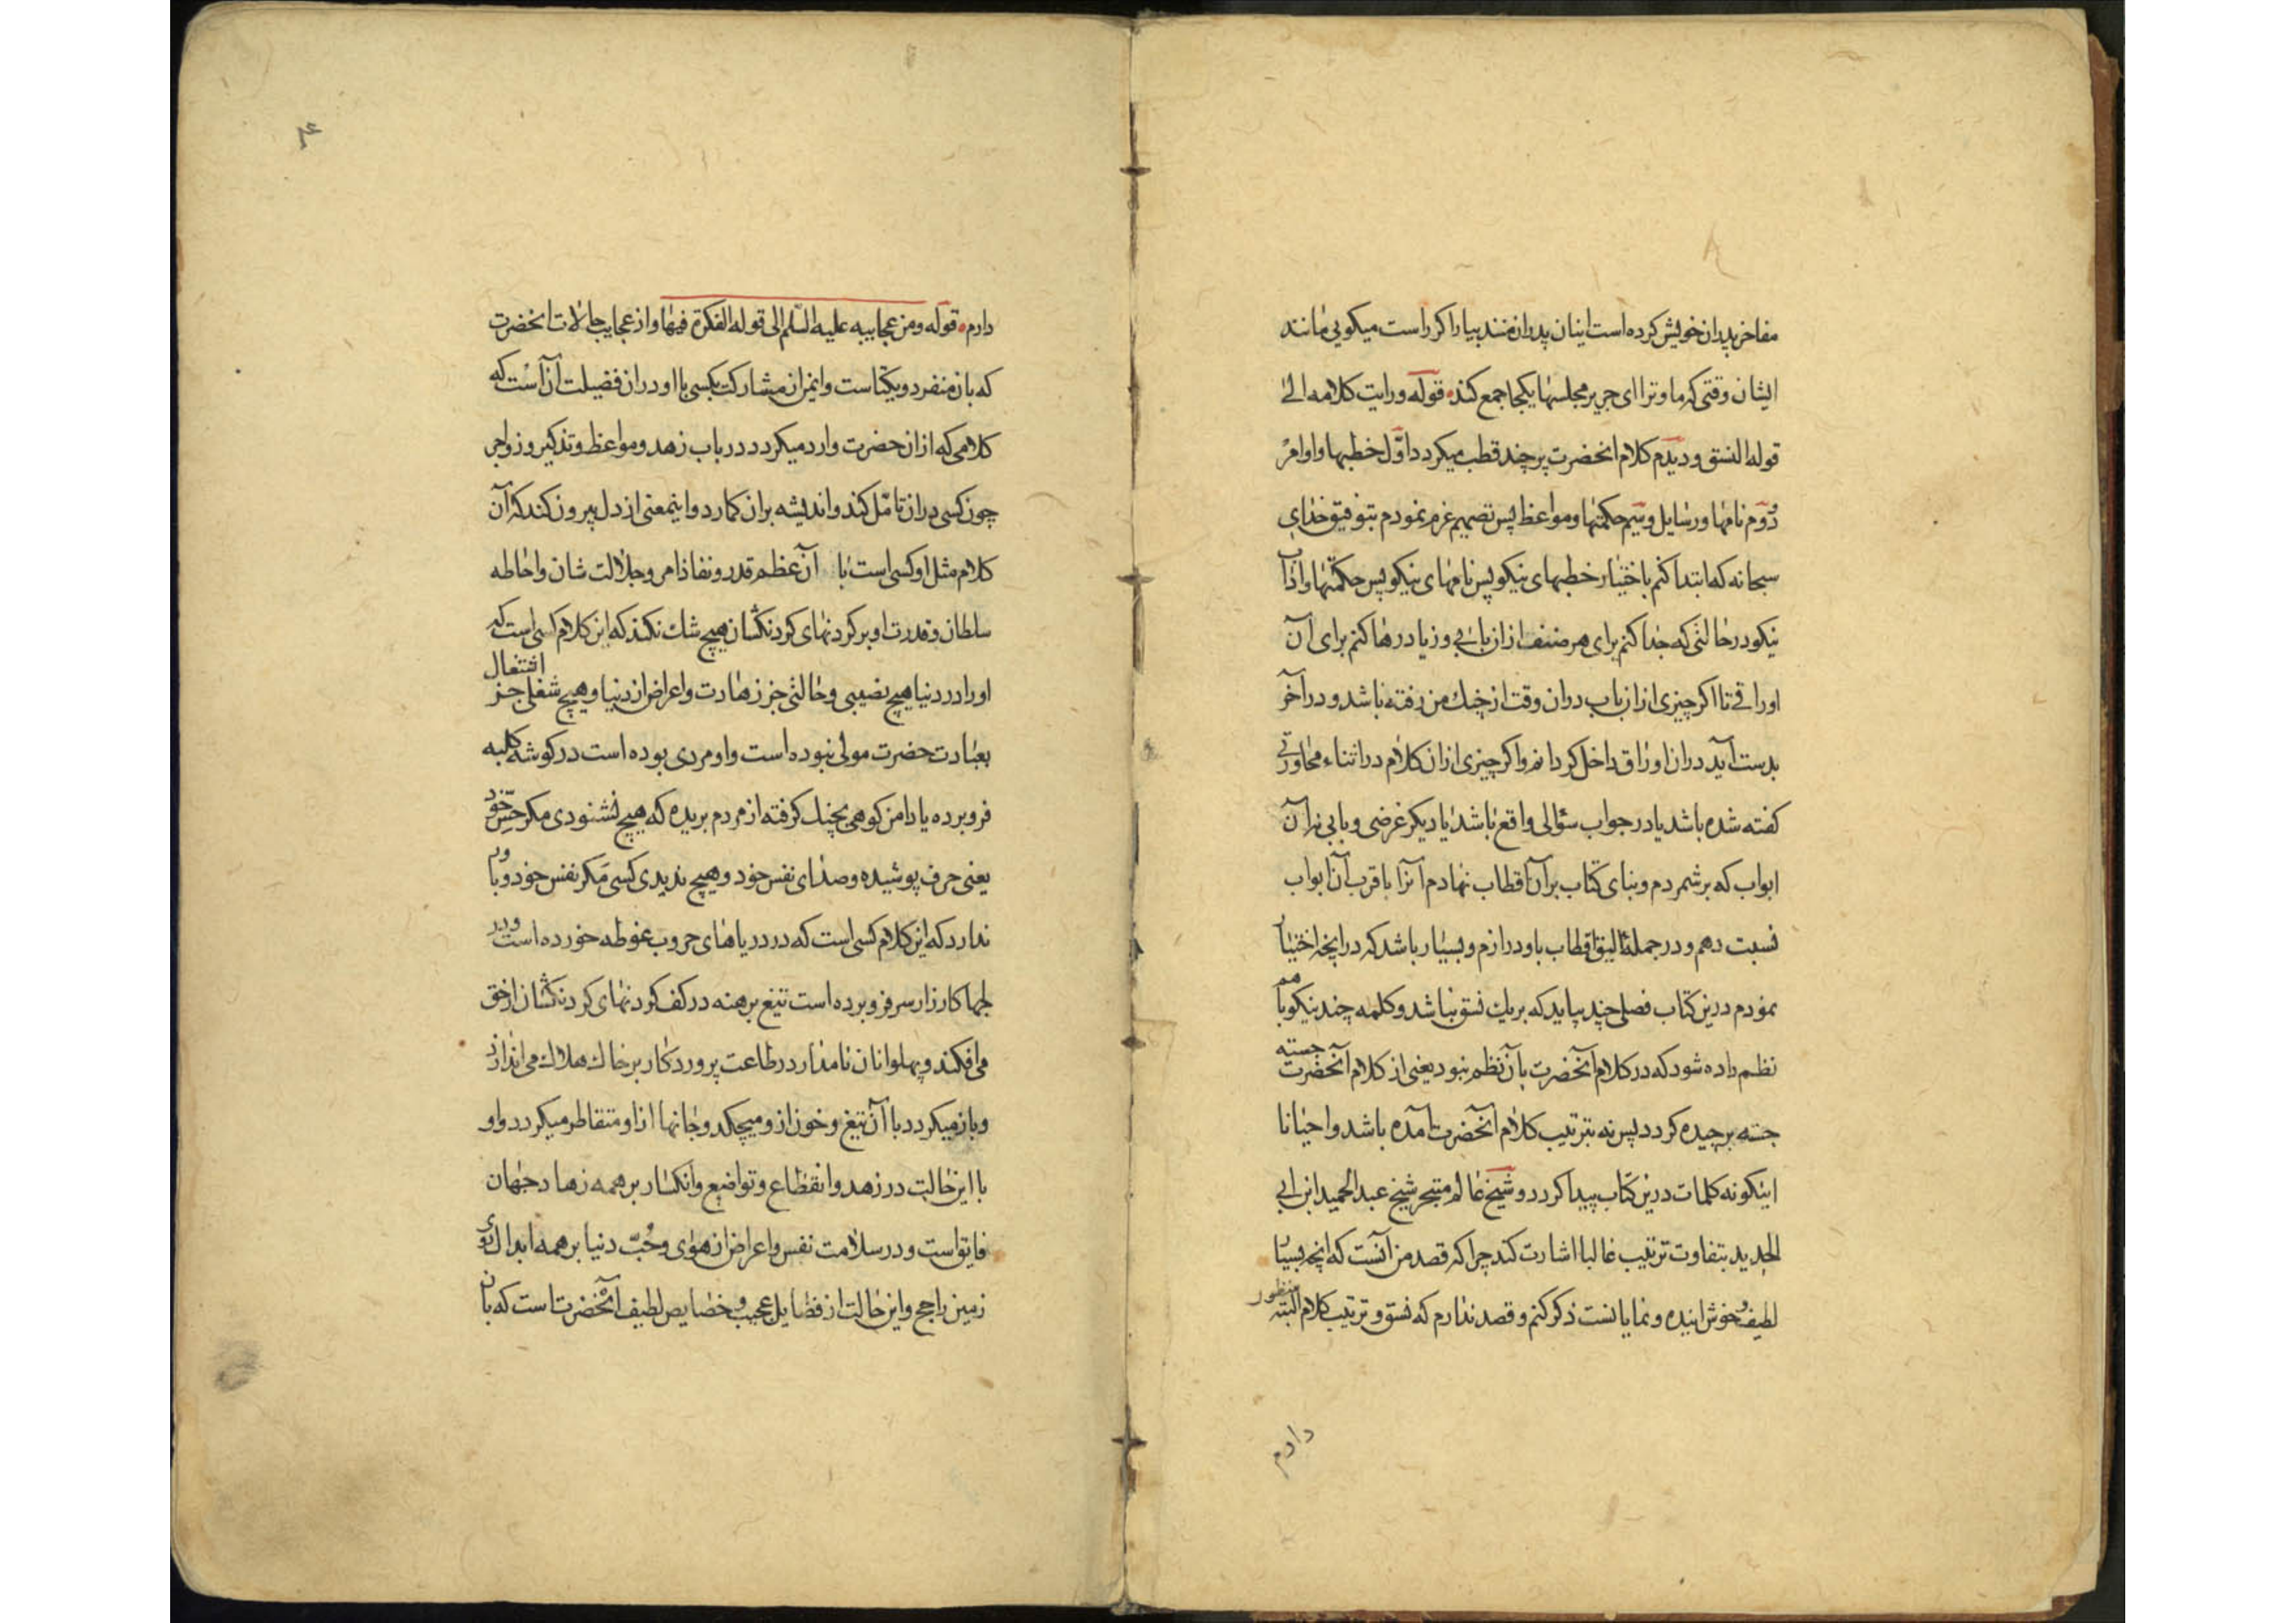 مفاخر پدران خویش کرده است اینان پدران منند بیار اگر راست میکویی مانند
ایشان وقتی که ما و ترا ای جریر مجلسها یکجا جمع کند قوله ورایت کلامه الی
قوله النسق و دیدم کلام انحضرت بر چند قطب میکردد اوّل خطبها و اوامر
دوّم نامها و رسایل و سیم حکمتها و مواعظ پس تصمیم عزم نمودم بتوفیق خدای
سبحانه که ابتدا کنم باختیار خطبهای نیکو پس نامهای نیکو پس حکمتها و آداب
نیکو در حالتی که جدا کنم برای هر صنف ازان بابی و زیاد رها کنم برای آن
اوراقی تا اکر چیزی ازان باب دران وقت از چنك من رفته باشد و در آخر
بدست آید دران اوراق داخل کردانم و اکر چیزی ازان کلام در اثناء محاورتی
کفته شده باشد یا در جواب سؤالی واقع باشد یا دیکر غرضی و بابی نه آن
ابواب که برشمردم و بنای کتاب بر آن اقطاب نهادم آنرا باقرب آن ابواب
نسبت دهم و در جمله الیق اقطاب باو درارم و بسیار باشد که در انچه اختیار
نمودم درین کتاب فصلی چند بیاید که بر یك نسق نباشد و کلمه چند نیکو باهم
نظم داده شود که در کلام آنحضرت بآن نظم نبود یعنی از کلام آنحضرت جسته
جسته برچیده کردد پس نه بترتیب کلام آنحضرت آمده باشد و احیانا
اینکونه کلمات درین کتاب پیدا کردد و شیخ عالم متبحر شیخ عبد الحمید ابن ابی
الحدید بتفاوت ترتیب غالبا اشارت کند چرا که قصد من آنست که انچه بسیار
لطیف و خوش اینده و نمایانست ذکر کنم و قصد ندارم که نسق و ترتیب کلام البته منظور
دارم
۴
دارم قوله و من عجایبه علیه السّلم الی قوله الفکرة فیها و از عجایب حالات انحضرت
که بان منفرد و یکتاست و ایمن از مشارکت کسی با او در ان فضیلت آن آست که
کلامی که ازان حضرت وارد میکردد در باب زهد و مواعظ و تذکیر و زواجر
چون کسی دران تامّل کند و اندیشه بران کمارد و اینمعنی از دل بیرون کند که آن
کلام مثل او کسی است با آن عظم قدر و نفاذ امر و جلالت شان و احاطه
سلطان و قدرت او بر کردنهای کردنکشان هیچ شك نکند که این کلام کسی است که
او را در دنیا هیچ نصیبی و حالتی جز زهادت و اعراض از دنیا و هیچ شغلی جز اشتغال
بعبادت حضرت مولی نبوده است و او مردی بوده است در کوشه کلبه
فرو برده یا دامن کوهی بچنك کرفته از مردم بریده که هیچ نشنودی مکر حسّ خود
یعنی حرف پوشیده و صدای نفس خود و هیچ ندیدی کسی مکر نفس خود و باور
ندارد که این کلام کسی است که در دریاهای حروب غوطه خورده است و در
لجها کارزار سر فرو برده است تیغ برهنه در کف کردنهای کردنکشان از حق
می افکند و پهلوانان نامدار در طاعت پروردکار بر خاك هلاك می اندازد
و باز میکردد با آن تیغ و خون ازو میچکد و جانها ازو متقاطر میکردد و او
با این حالت در زهد و انقطاع و تواضع و انکسار بر همه زهاد جهان
فایق است و در سلامت نفس و اعراض از هوای و حُبّ دنیا بر همه ابدال روی
زمین راجح و این حالت از فضایل عجیب و خصایص لطیف آنحضرت است که بان